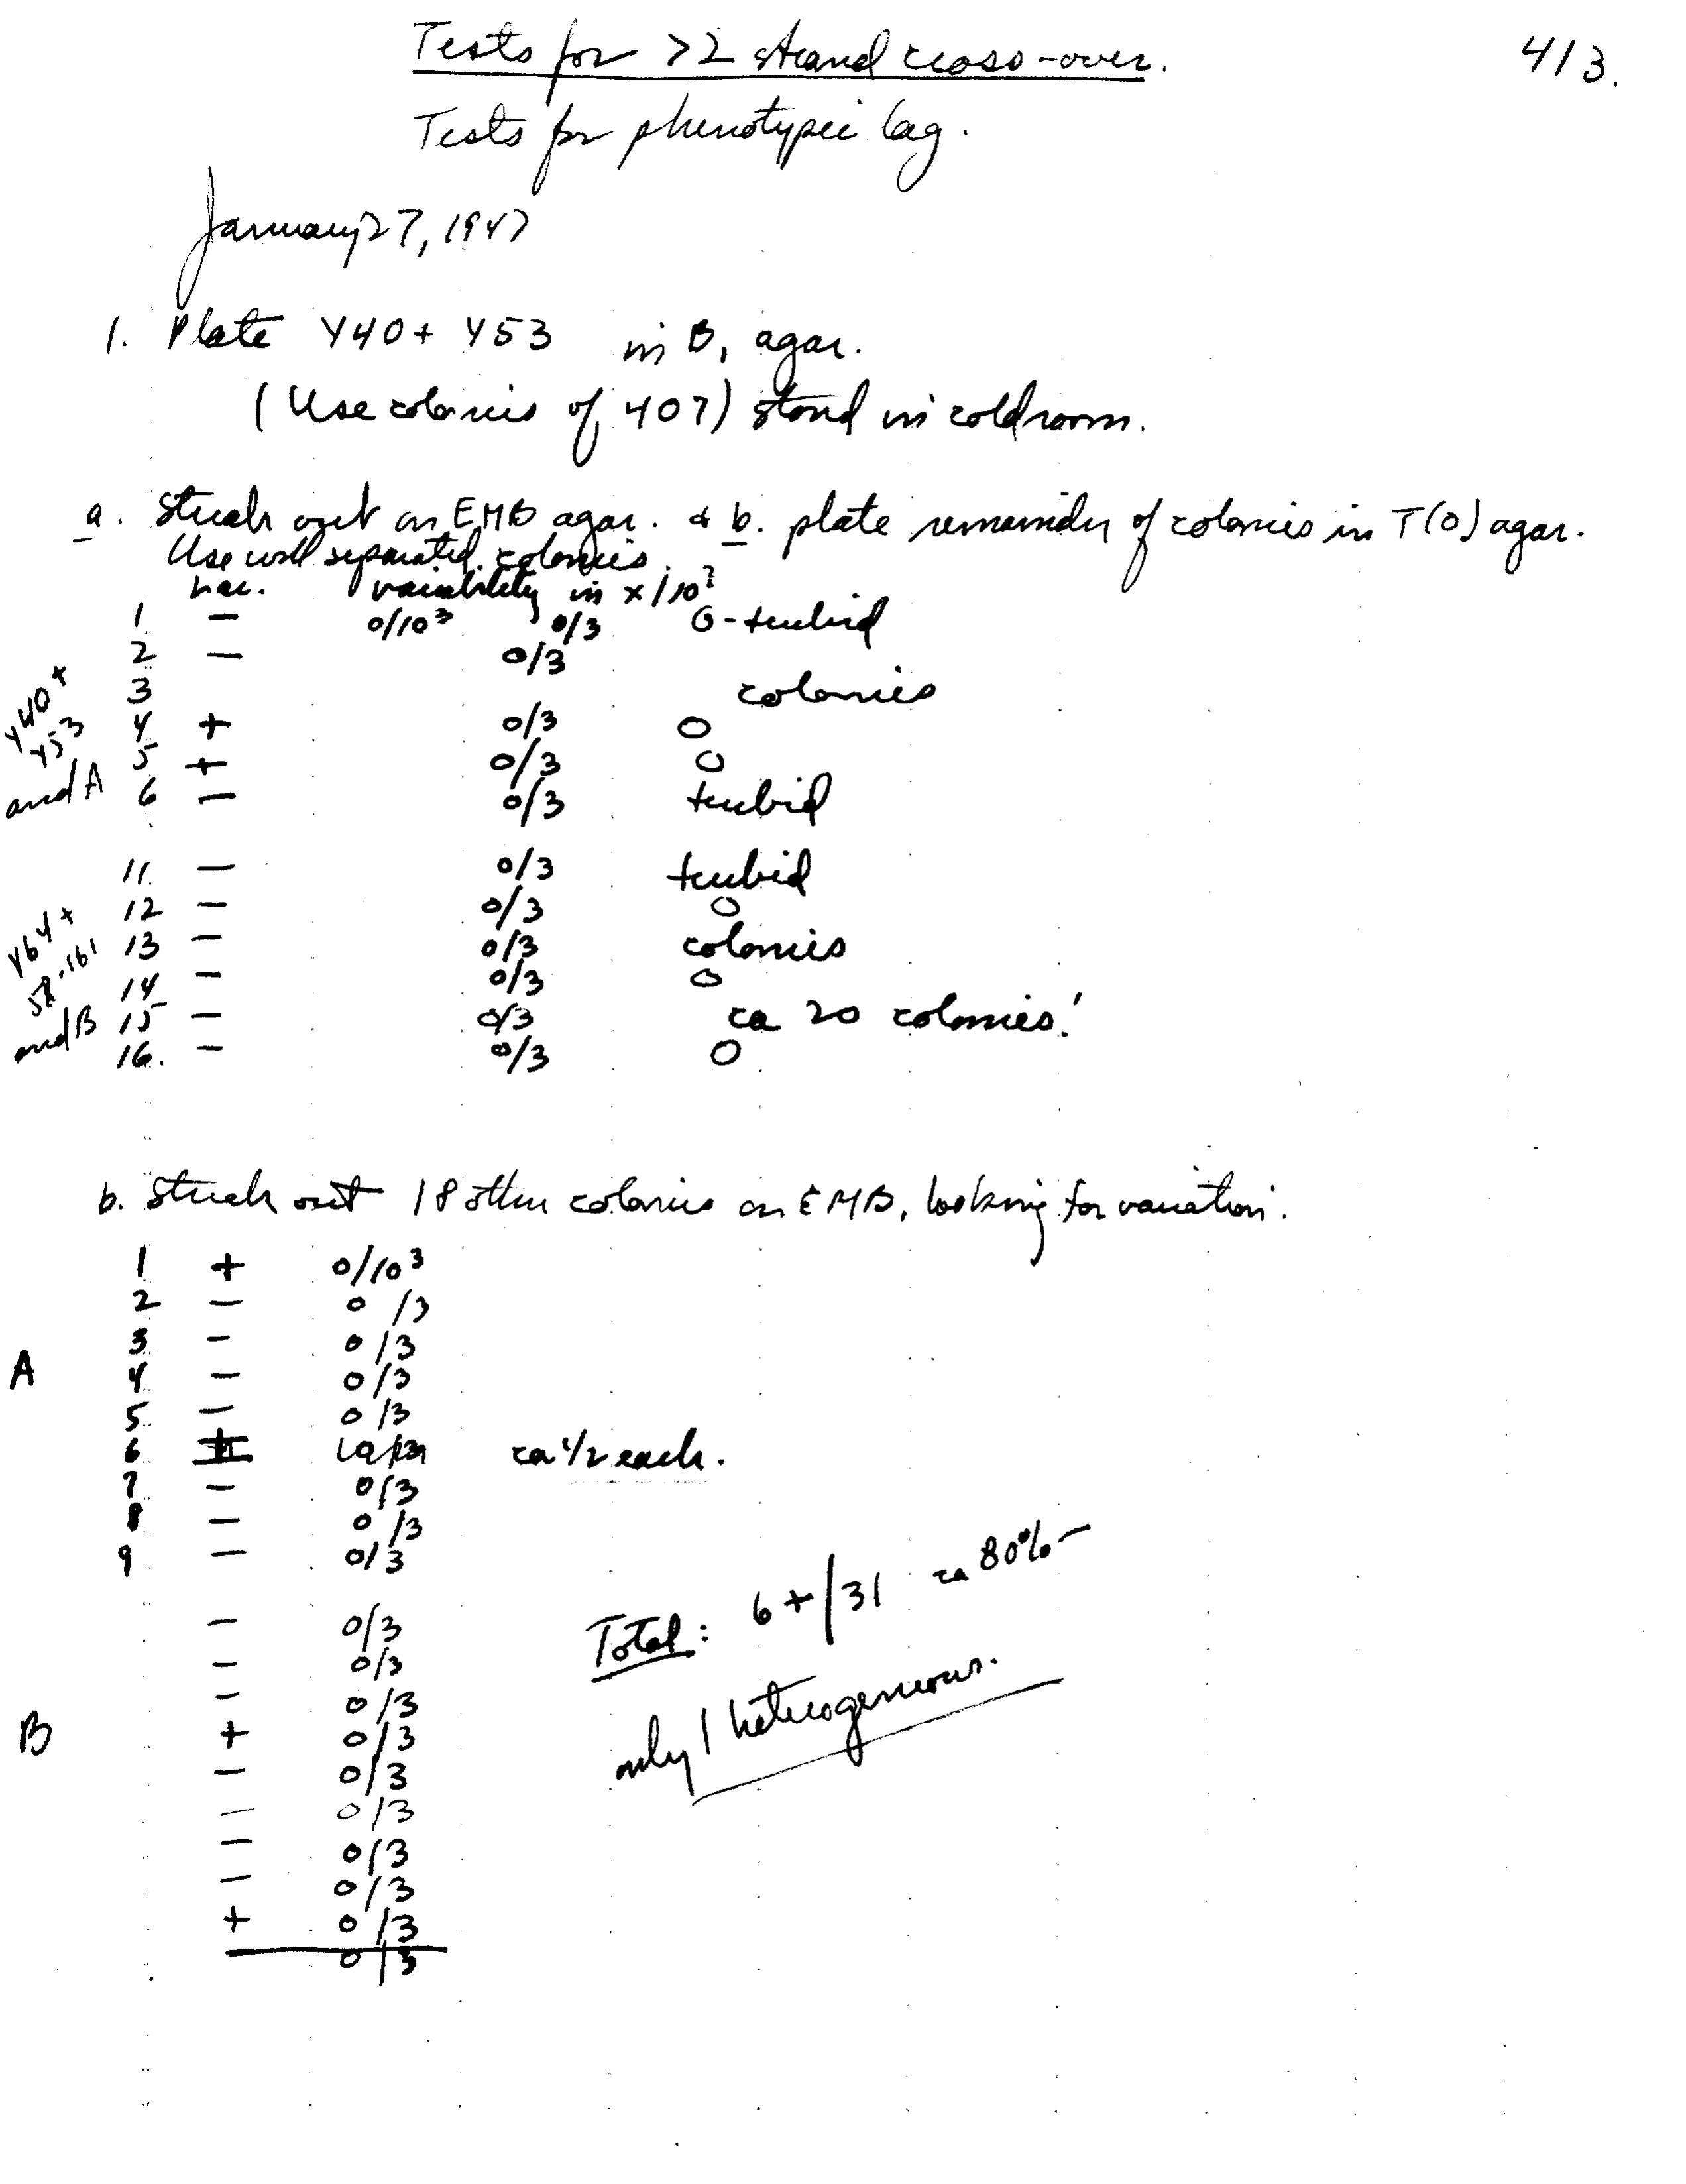 Tests for >2 strand cross-over. 413.
Tests for phenotypic lag.
January 27, 1947
1. Plate Y40 + Y53 in B, agar.
(Use colonies of 407) stood in coldroom.
a. Streak out on EMB agar. & b. plate remainder of colonies in T(0) agar.
Use well separated colonies.
Lac. variability in x/10³
1 − 0/10³ 0/3 0-turbid
2 − 0/3
3 colonies
Y40 + Y53 and A
4 + 0/3 0
5 + 0/3 0
6 − 0/3 turbid
11. − 0/3 turbid
12 − 0/3 0
Y64 + 58-161 and B
13 − 0/3 colonies
14 − 0/3 0
15 − 0/3 ca 20 colonies!
16. − 0/3 0
b. Streak out 18 other colonies on EMB, looking for variation.
1 + 0/10³
2 − 0/3
3 − 0/3
A
4 − 0/3
5 − 0/3
6 ca ½ each.
7 − 0/3
8 − 0/3
9 − 0/3
− 0/3
− 0/3
− 0/3
B
+ 0/3
− 0/3
− 0/3
− 0/3
− 0/3
+ 0/3
0/3
Total: 6+/31 ca 80% −
only 1 heterogeneous.